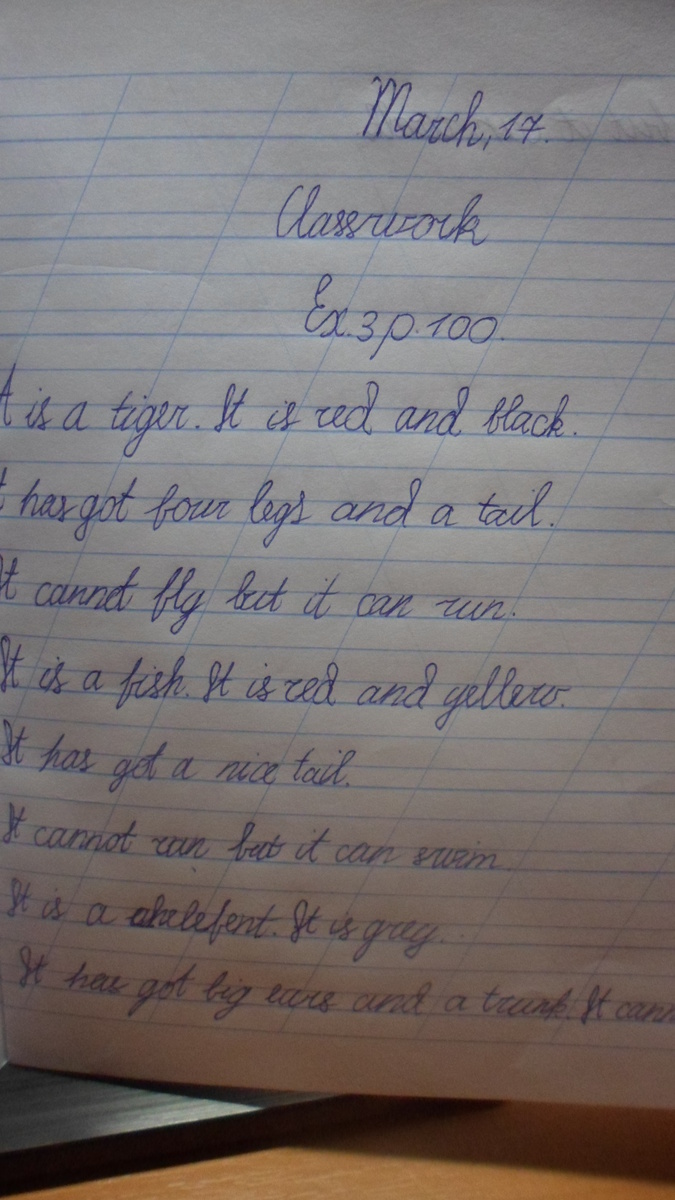 March, 17.
Classwork
Ex. 3 p. 100.
It is a tiger. It is red and black.
It has got four legs and a tail.
It cannot fly but it can run.
It is a fish. It is red and yellow.
It has got a nice tail.
It cannot run but it can swim.
It is a It is grey.
It has got big ears and a trunk. It cann